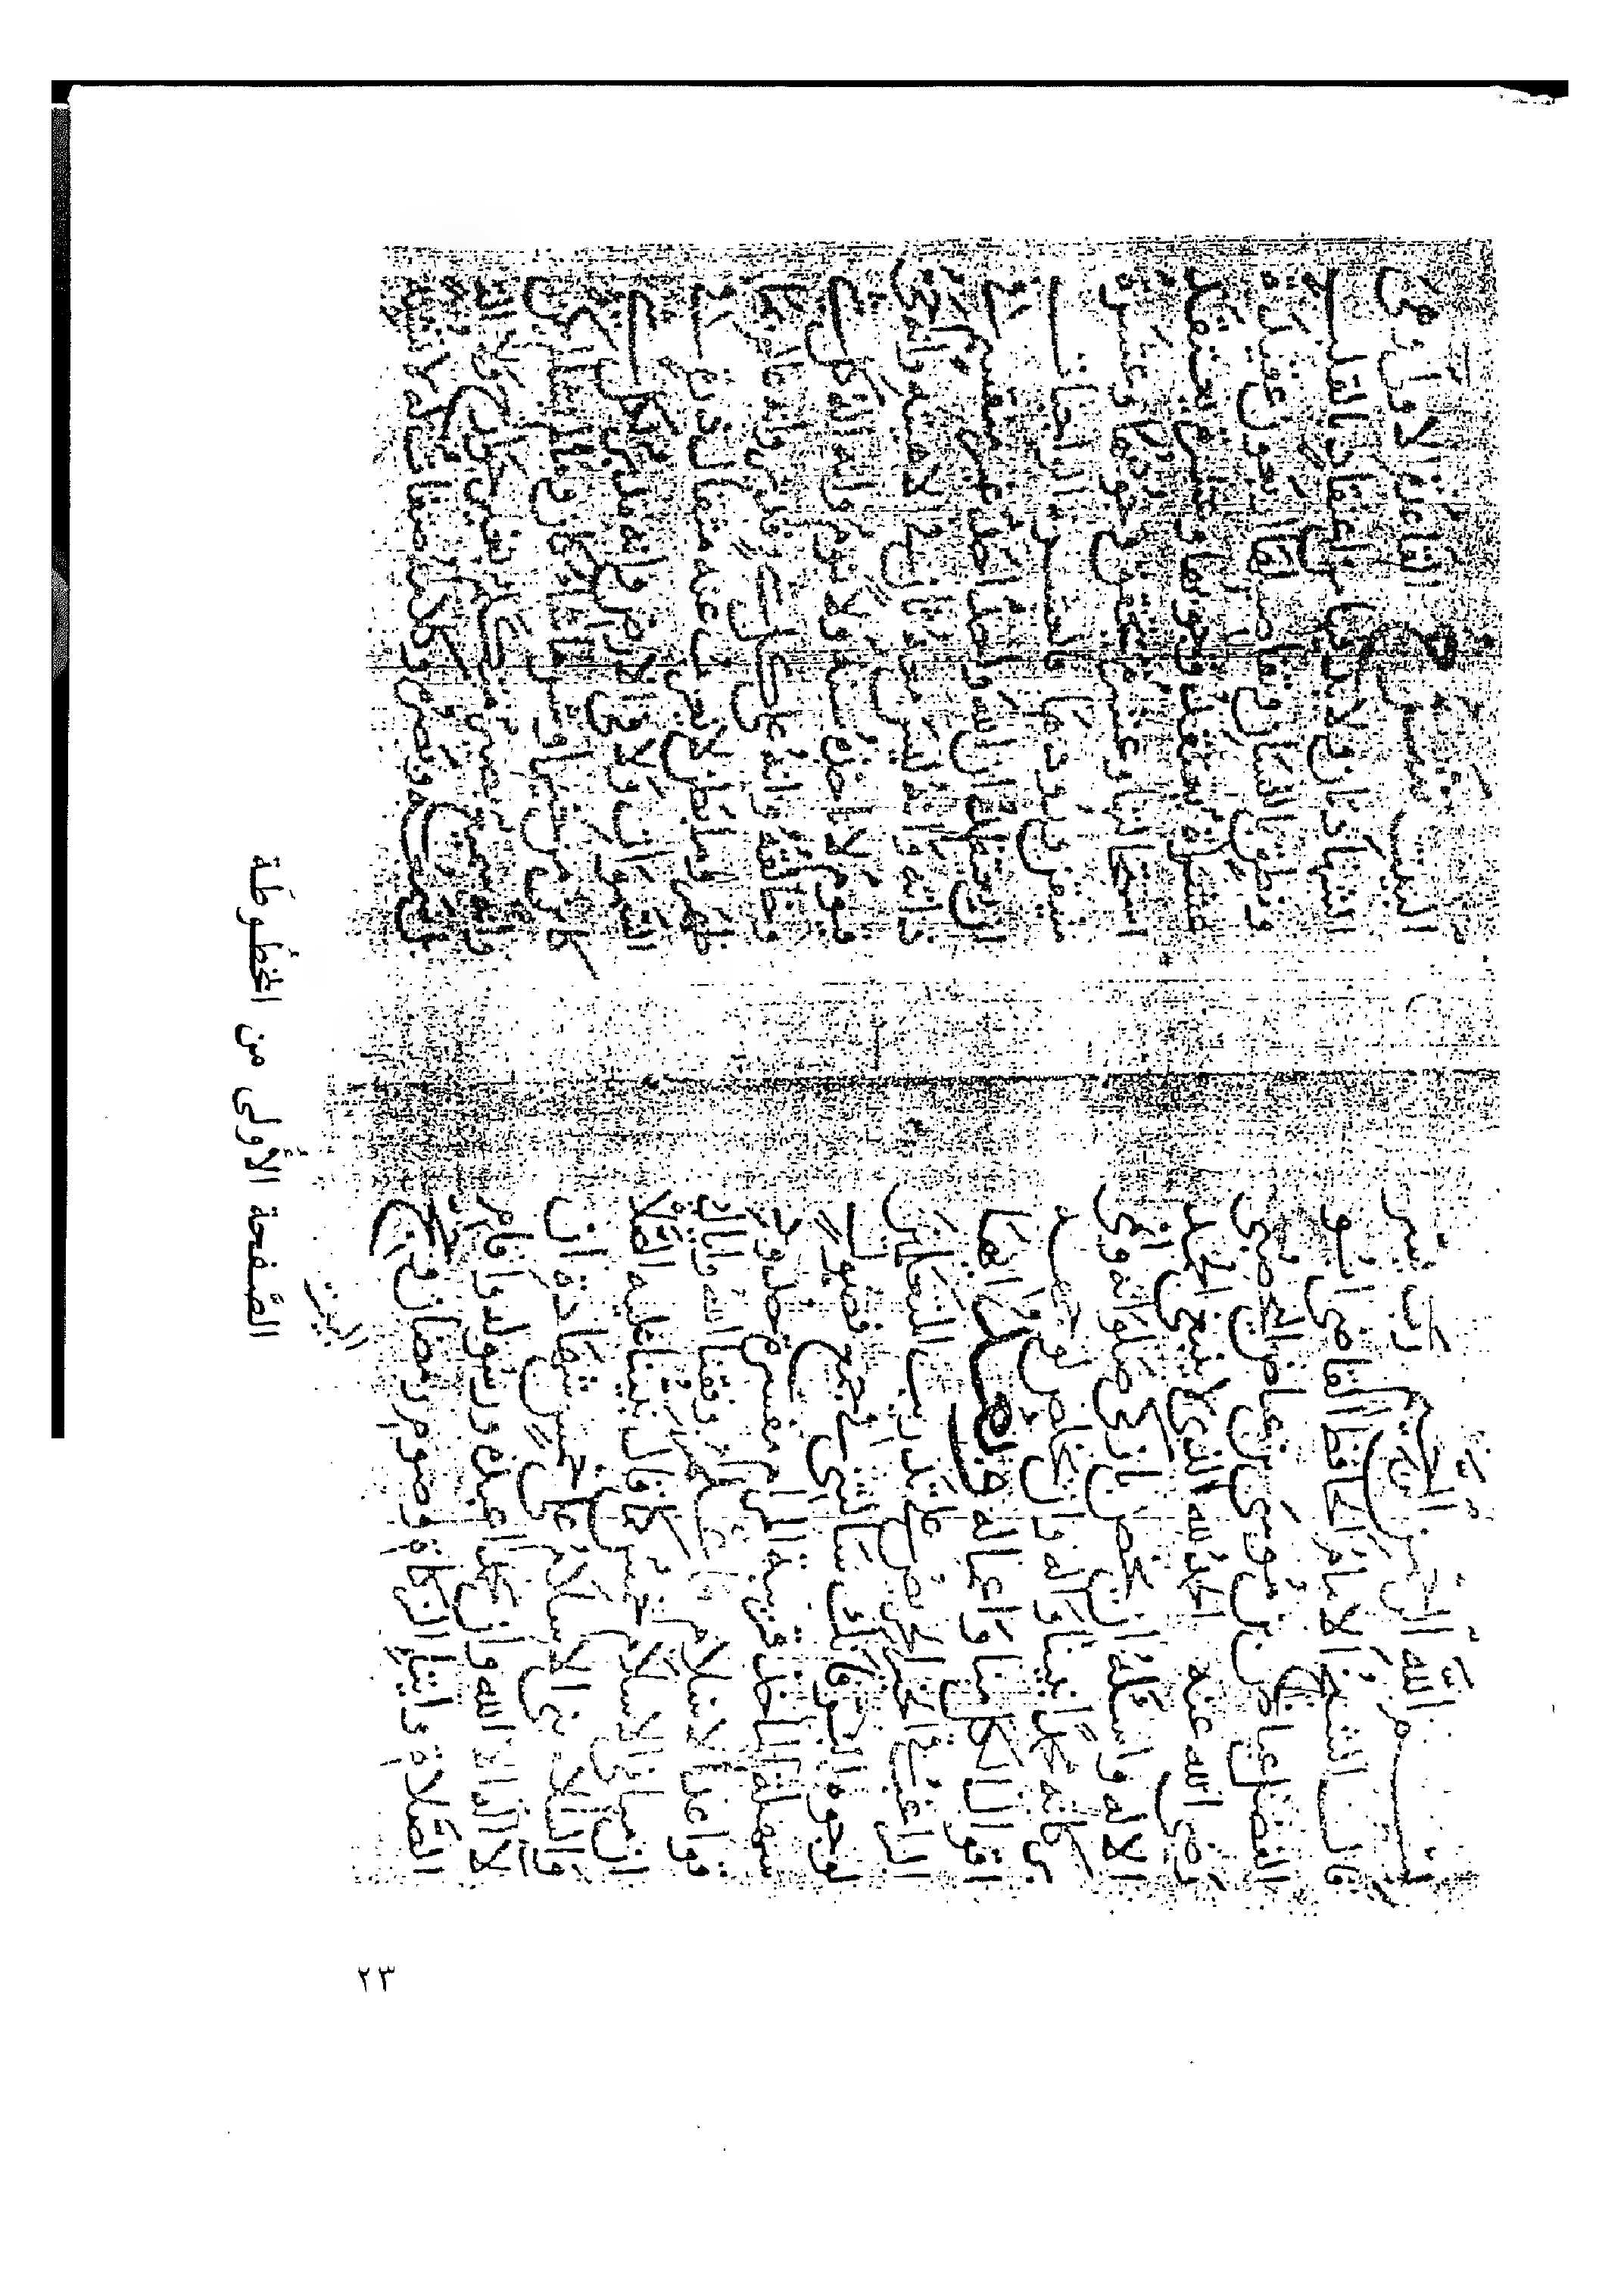 بسم الله الرحمن الرحيم رب يسر
قال الشيخ الامام الحافظ القاضي ابو
الفضل عياض بن موسى بن عياض اليحصبي
رضي الله عنه الحمد لله الذي لا ينبغي الحمد
الا له واسئله ان يخص بازكى صلواته وانمى
بركاته محمدا نبينا وآله وان يخلص لوجهه
اقوالنا كلها واعمالنا ايها
الراغب في الخير الحريص على تدريب المتعلمين
لوجوه البر فانك سالتني في جمع فصول
سهلة الماخذ قريبة المرام مفسرة حدود
قواعد الاسلام فاعلم وفقنا الله واياك
ان مباني الاسلام خمس كما قال نبينا عليه السلام
بني الاسلام على خمس شهادة ان
لا اله الا الله وان محمدا عبده ورسوله واقام
الصلاة وايتاء الزكاة وصوم رمضان وحج
البيت
البيت القاعدة الاولى وهي
الشهادتان ولا بد من اعتقاد بالقلب
ونطق باللسان وتفاصيلها اربعون عقيدة
عشرة يعتقد وجوبها وعشرة يعتقد
استحالتها وعشرة يتحقق وجودها وعشرة
متيقن ورودها فالعشر الواجبات
ان يعتقد ان الله واحد غير منقسم في
ذاته وانه ليس معه ثان في الاهيته وانه حي
قيوم لا تاخذه سنة ولا نوم وانه اله كل
وخالقه وانه على كل شيء قدير وانه عالم بما
ظهر وما بطن لا يعزب عنه مثقال ذرة في
السموات ولا في الارض وانه مريد لكل
كائن من خير او شر ما شاء كان وما لم يشأ لم يكن
وانه سميع بصير متكلم بغير جارحة ولا الة
بل سمعه وبصره وكلامه صفات له لا تشبه
الصفحة الأولى من المخطوطة
٢٣